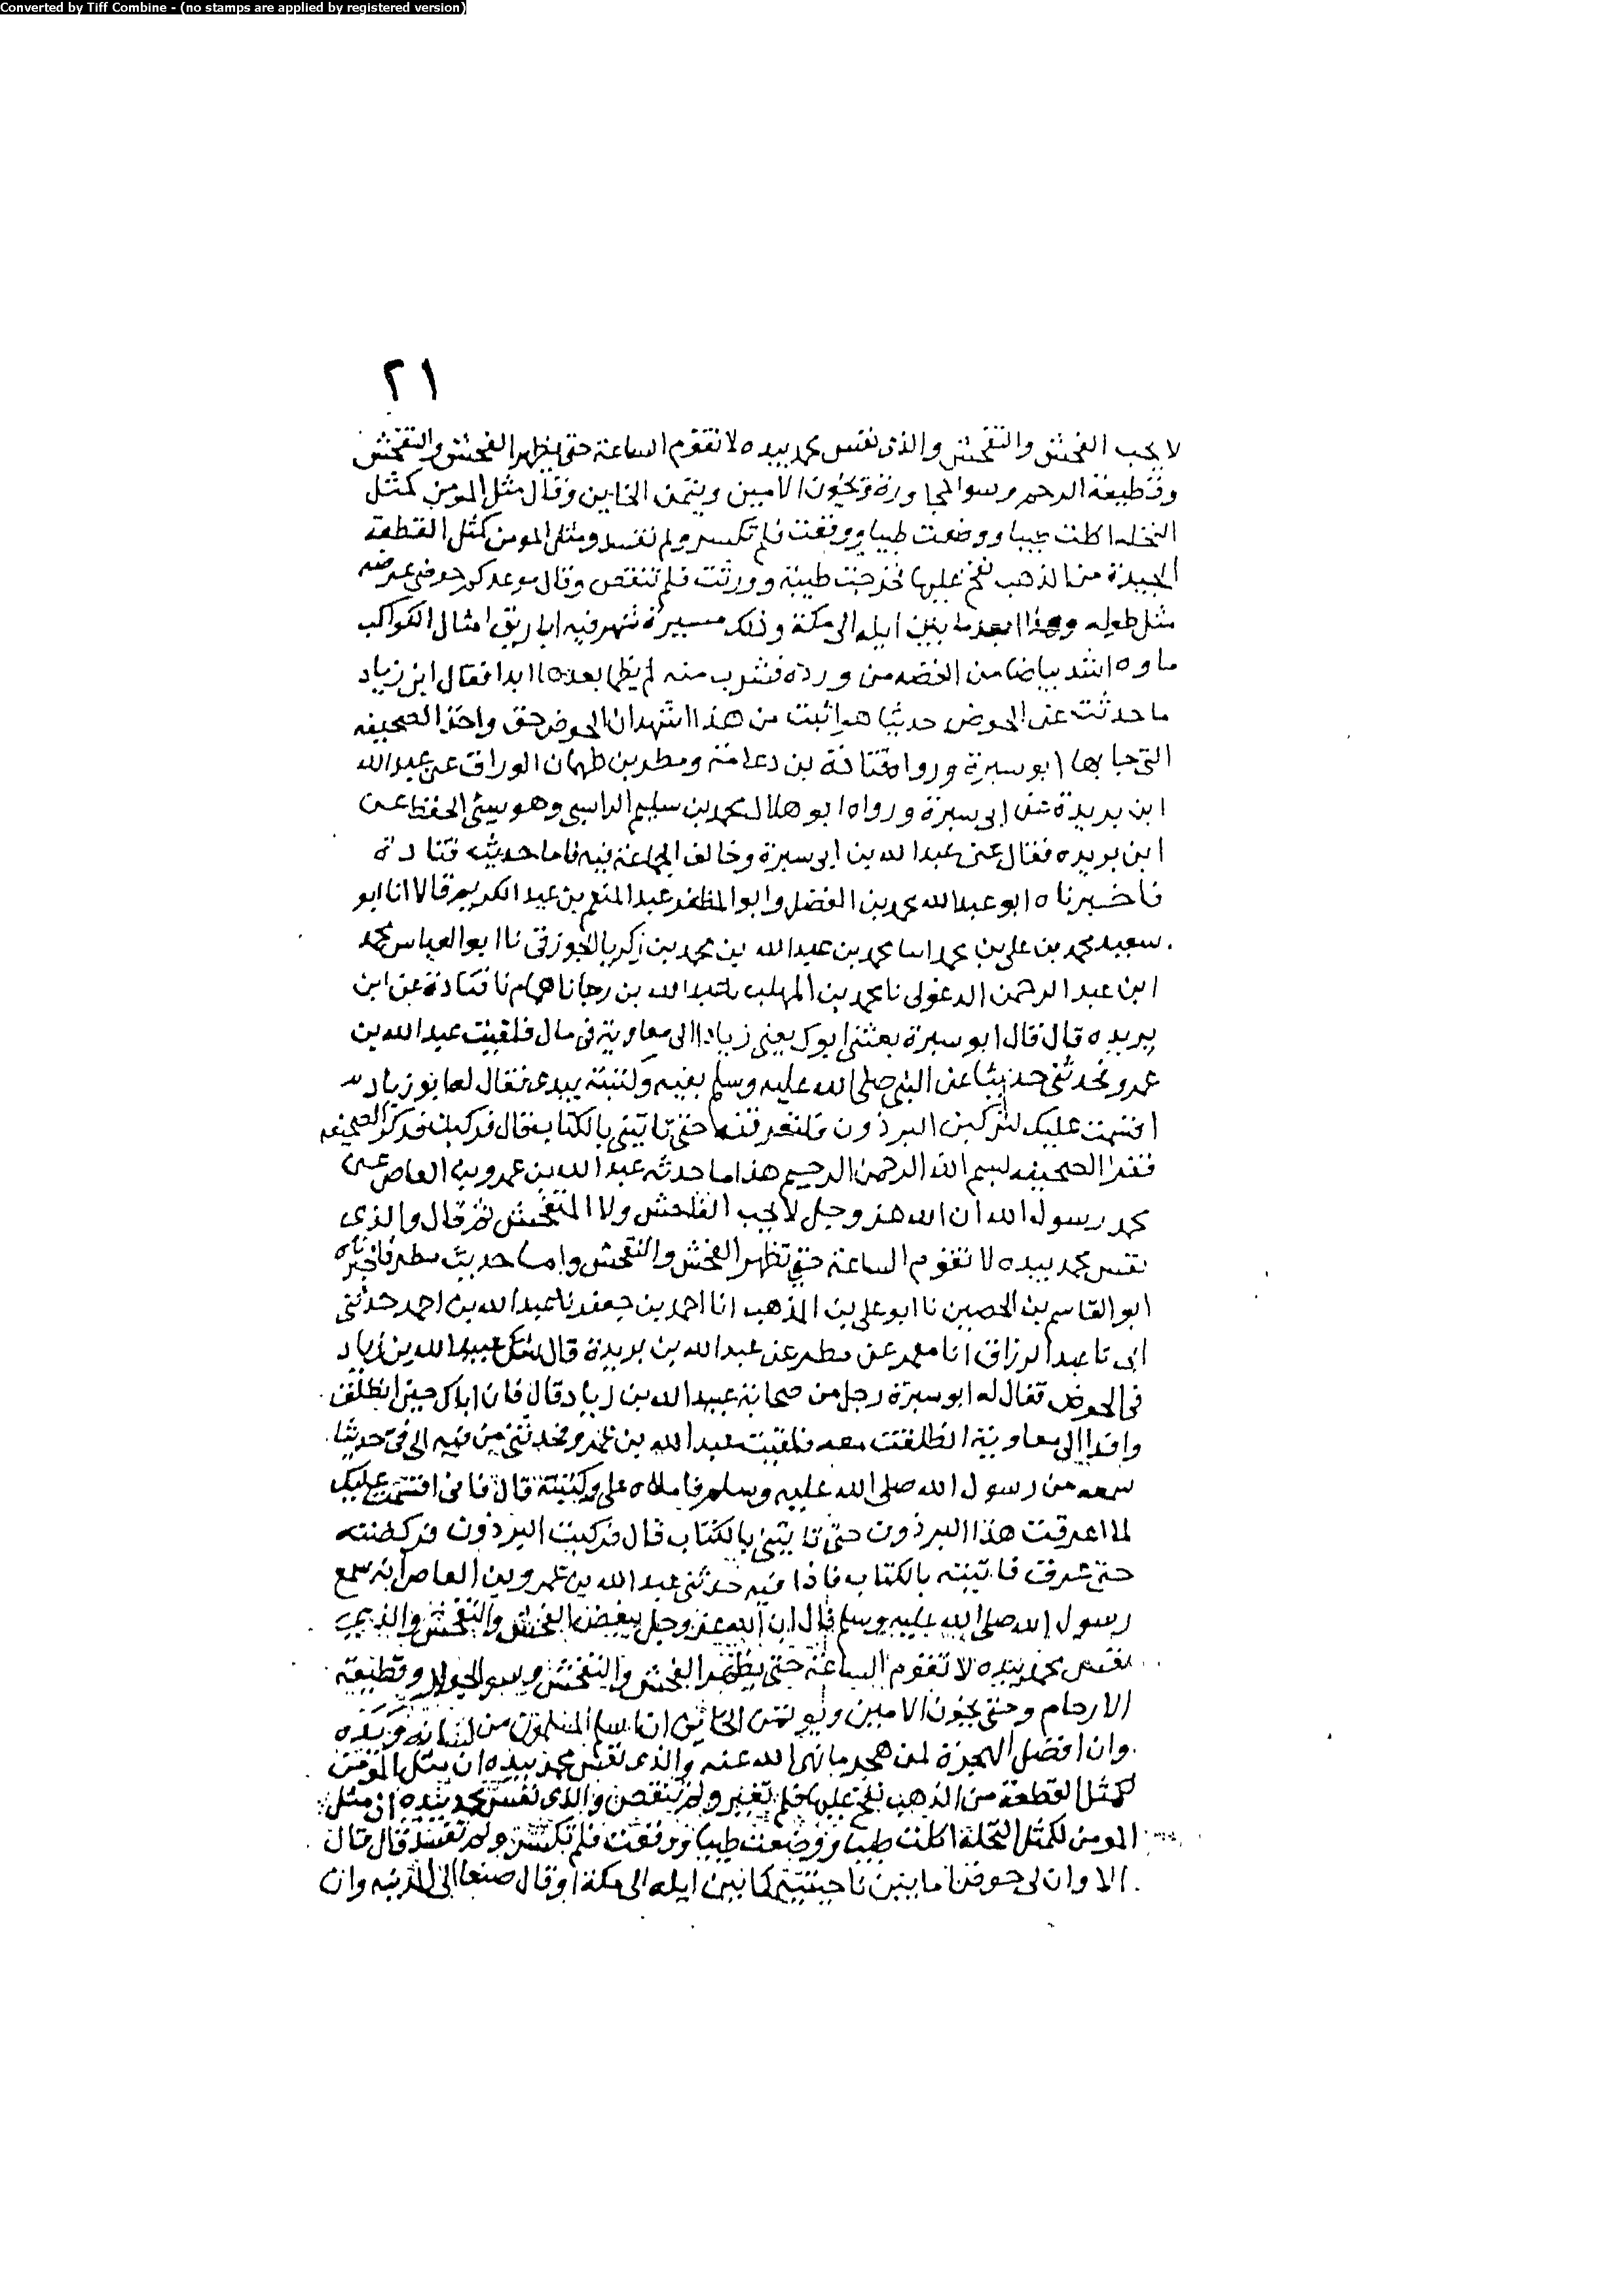 Converted by Tiff Combine - (no stamps are applied by registered version)
٢١
لا يحب الفحش والتفحش والذى نفس محمد بيده لا تقوم الساعة حتى يظهر الفحش والتفحش
وقطيعة الرحم وسوا المجاورة ويخون الامين ويتمن الخاين وقال مثل المومن كمثل
النخله اكلت طيبا ووضعت طيبا ووقعت فلم تكسر ولم تفسد ومثل المومن كمثل القطعة
الجيدة من الذهب نفخ عليها فخرجت طيبة ووزنت فلم تنقص وقال موعدكم حوضى عرضه
مثل طوله وهذا ابعد ما بين ايله الى مكة وذلك مسيرة شهر فيه اباريق امثال الكواكب
ماوه اشد بياضا من الفضه من ورده فشرب منه لم يظما بعدها ابدا فقال ابن زياد
ما حدثت عن الحوض حديثا هو اثبت من هذا اشهد ان الحوض حق واخذ الصحيفه
التى جا بها ابو سبرة ورواه قتادة بن دعامة ومطر بن طهمان الوراق عن عبد الله
ابن بريدة عن ابى سبرة ورواه ابو هلال محمد بن سليم الراسبى وهو سيئ الحفظ عن
ابن بريده فقال عن عبد الله بن ابى سبرة وخالف الجماعة فيه فاما حديث قتادة
فاخبرناه ابو عبد الله محمد بن الفضل وابو المظفر عبد المنعم بن عبد الكريم قالا انا ابو
سعيد محمد بن على بن محمد انا محمد بن عبد الله بن محمد بن زكريا الجوزقى نا ابو العباس محمد
ابن عبد الرحمن الدغولى نا محمد بن المهلب نا عبد الله بن رجا نا همام نا قتادة عن ابن
بريده قال قال ابو سبرة بعثنى ابوك يعنى زيادا الى معاوية فى مال فلقيت عبد الله بن
عمرو فحدثنى حديثا عن النبى صلى الله عليه وسلم بفيه وكتبته بيدى فقال
اقسمت عليك لتركبن البرذون فلتعرقنه حتى تاتينى بالكتاب فقال فركبت فذكر الصحيفه
فقرا الصحيفه بسم الله الرحمن الرحيم هذا ما حدثه عبد الله بن عمرو بن العاص عن
محمد رسول الله ان الله عز وجل لا يحب الفاحش ولا المتفحش ثم قال والذى
نفس محمد بيده لا تقوم الساعة حتى تظهر الفحش والتفحش واما حديث مطر فاخبرناه
ابو القاسم بن الحصين نا ابو على بن المذهب انا احمد بن جعفر نا عبد الله بن احمد حدثنى
ابى نا عبد الرزاق انا معمر عن مطر عن عبد الله بن بريدة قال شك عبيد الله بن زياد
فى الحوض فقال له ابو سبرة رجل من صحابة عبيد الله بن زياد قال فان اباك حين انطلق
وافدا الى معاوية انطلقت معه فلقيت عبد الله بن عمرو فحدثنى من فيه الى فى حديثا
سمعه من رسول الله صلى الله عليه وسلم فاملاه على وكتبته قال فانى اقسمت عليك
لما اعرقت هذا البرذون حتى تاتينى بالكتاب قال فركبت البرذون فركضته
حتى عرق فاتيته بالكتاب فاذا فيه حدثنى عبد الله بن عمرو بن العاص انه سمع
رسول الله صلى الله عليه وسلم قال ان الله عز وجل يبغض الفحش والتفحش والذى
نفس محمد بيده لا تقوم الساعة حتى يظهر الفحش والتفحش وسو الجوار وقطيعة
الارحام وحتى يخون الامين ويوتمن الخائن ان اسلم المسلمون من لسانه ويده
وان افضل الهجرة لمن هجر ما نهى الله عنه والذى نفس محمد بيده ان مثل المومن
لكمثل القطعة من الذهب نفخ عليها فلم تغير ولم تنقص والذى نفس محمد بيده ان مثل
المومن لكمثل النحلة اكلت طيبا ووضعت طيبا ووقعت فلم تكسر ولم تفسد قال قال
الا وان لى حوضا ما بين ناحيتيه كما بين ايله الى مكة او قال صنعا الى المدينه وان